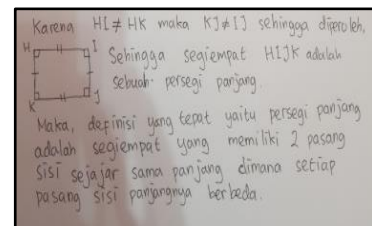 Karena HI ≠ HK maka KJ ≠ IJ sehingga diperoleh,
H I
Sehingga segiempat HIJK adalah
sebuah persegi panjang.
K J
Maka, definisi yang tepat yaitu persegi panjang
adalah segiempat yang memiliki 2 pasang
sisi sejajar sama panjang dimana setiap
pasang sisi panjangnya berbeda.